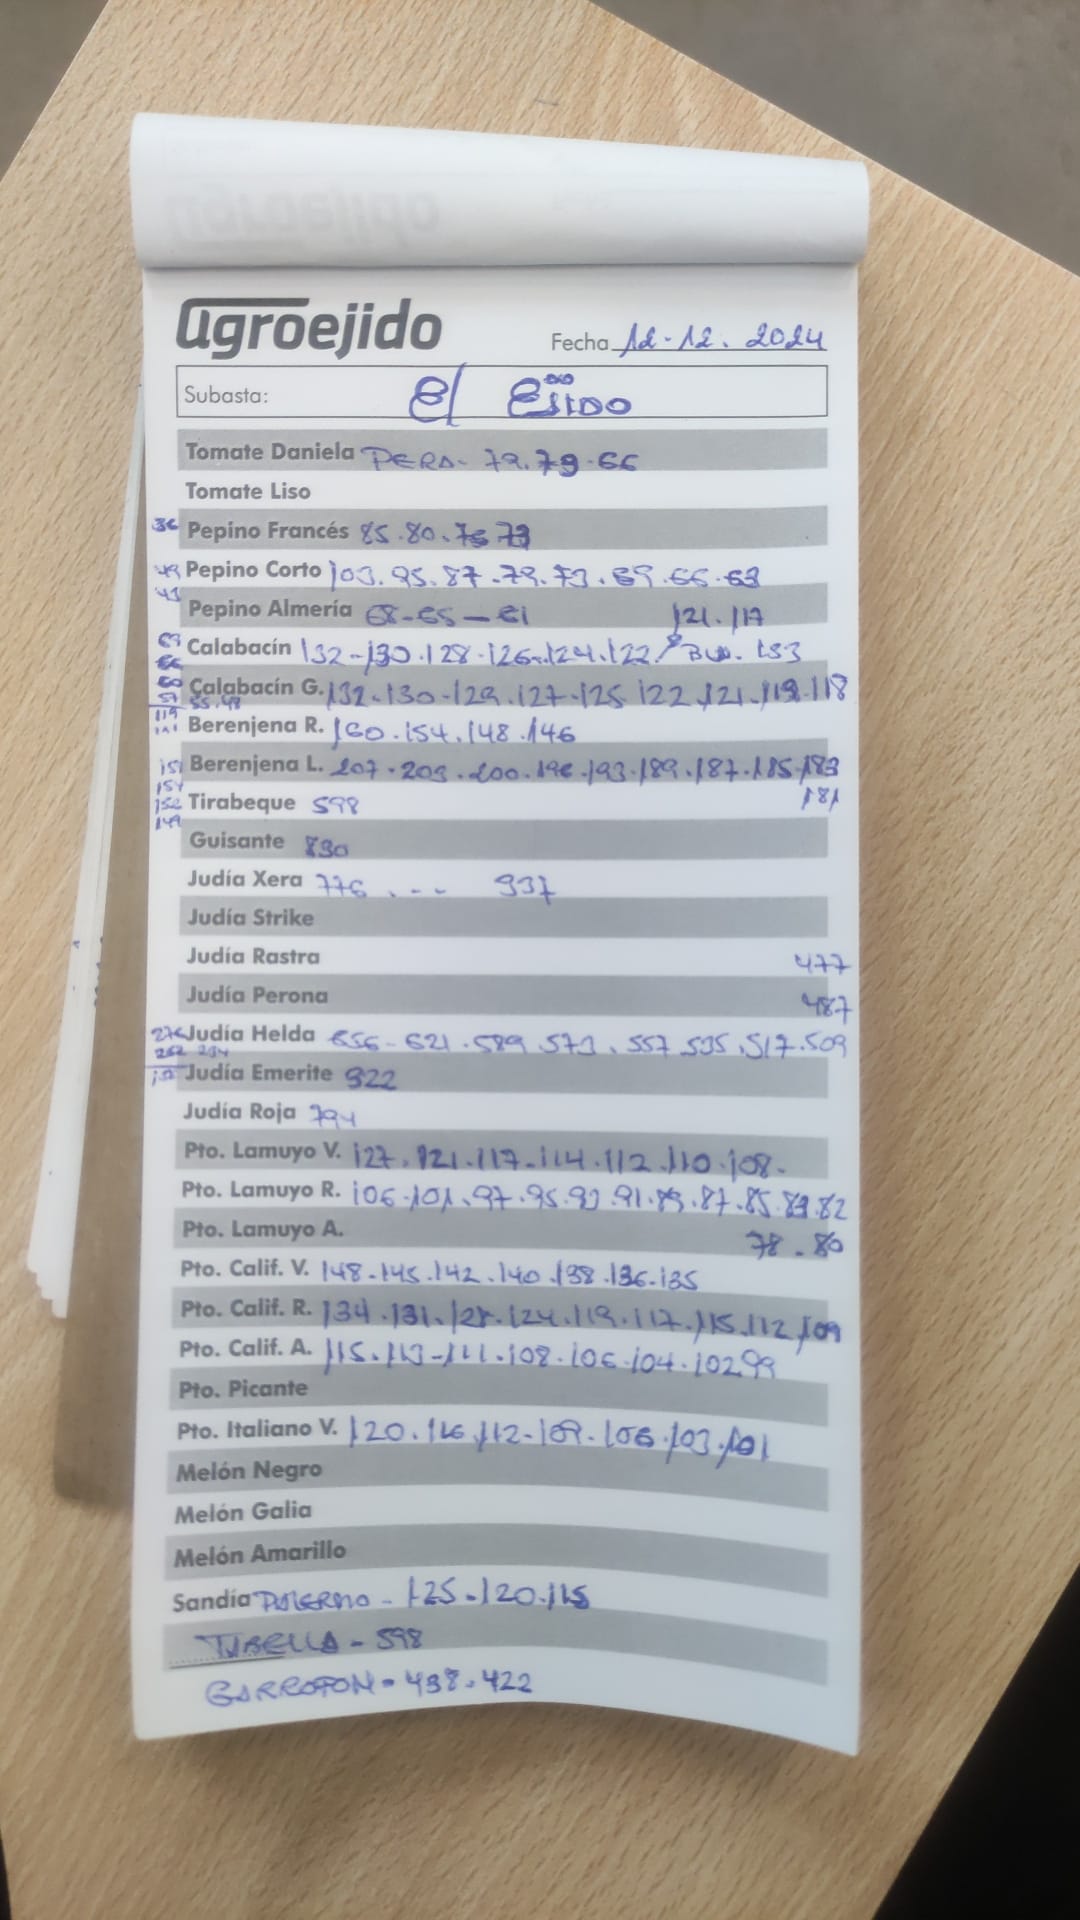 agroejido
Fecha 12-12. 2024
Subasta: El EJIDO
Tomate Daniela PERA- 72.79.66
Tomate Liso
36 Pepino Francés 85.80.76 73
49 Pepino Corto 103.95.87.79.73.69.66.63
43 Pepino Almería 68-65-61 121.117
69 Calabacín 132-130.128.126.124.122 153
66
60 Calabacín G. 132.130-129.127-125 122.121.119.118
57 55.48
119 Berenjena R. 160.154.148.146
151 Berenjena L. 207.203.200.196.193.189.187.185.183
154
152 Tirabeque 598 181
149
Guisante 830
Judía Xera 776 . - - 937
Judía Strike
Judía Rastra 477
Judía Perona 487
276 Judía Helda 656-621.589.573.557.535.517.509
262 234
Judía Emerite 922
Judía Roja 794
Pto. Lamuyo V. 127.121.117-114.112.110.108-
Pto. Lamuyo R. 106.101.97.95.93.91.89.87.85.83.82
Pto. Lamuyo A. 78.80
Pto. Calif. V. 148-145.142.140.138.136-135
Pto. Calif. R. 134.131.128.124.119.117.115.112.109
Pto. Calif. A. 115.113-111.108.106.104.102.99
Pto. Picante
Pto. Italiano V. 120.116.112-109.106.103.101
Melón Negro
Melón Galia
Melón Amarillo
Sandía PALERMO - 125-120.115
TUBELLA - 598
GARROFON - 438.422